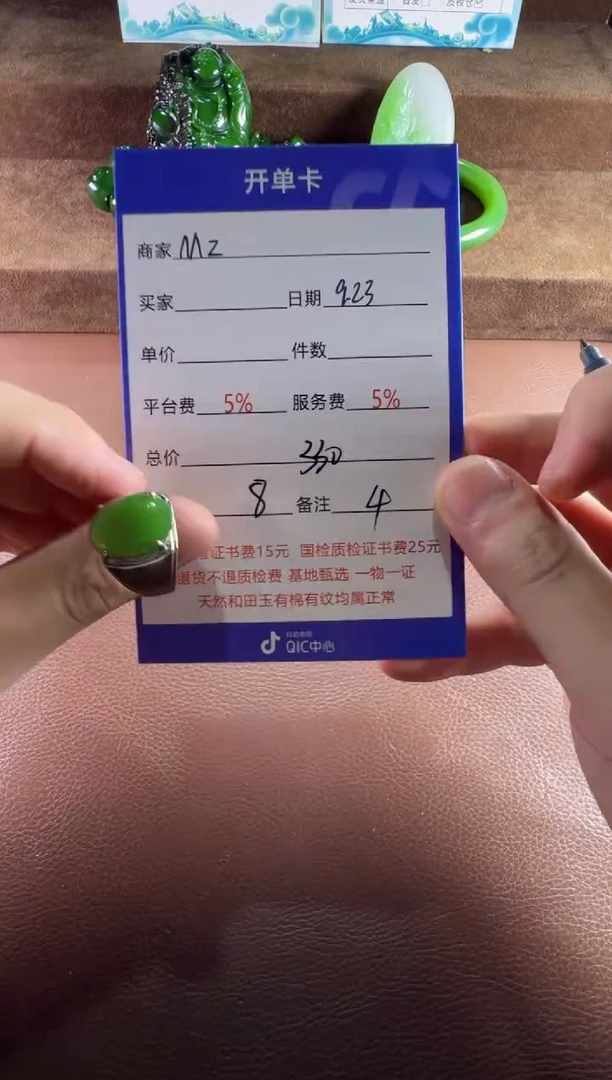 开单卡
商家 MZ
买家 日期 9.23
单价 件数
平台费 5% 服务费 5%
总价 350
8 备注 4
证书费15元 国检质检证书费25元
退货不退质检费 基地甄选 一物一证
天然和田玉有棉有纹均属正常
QIC中心